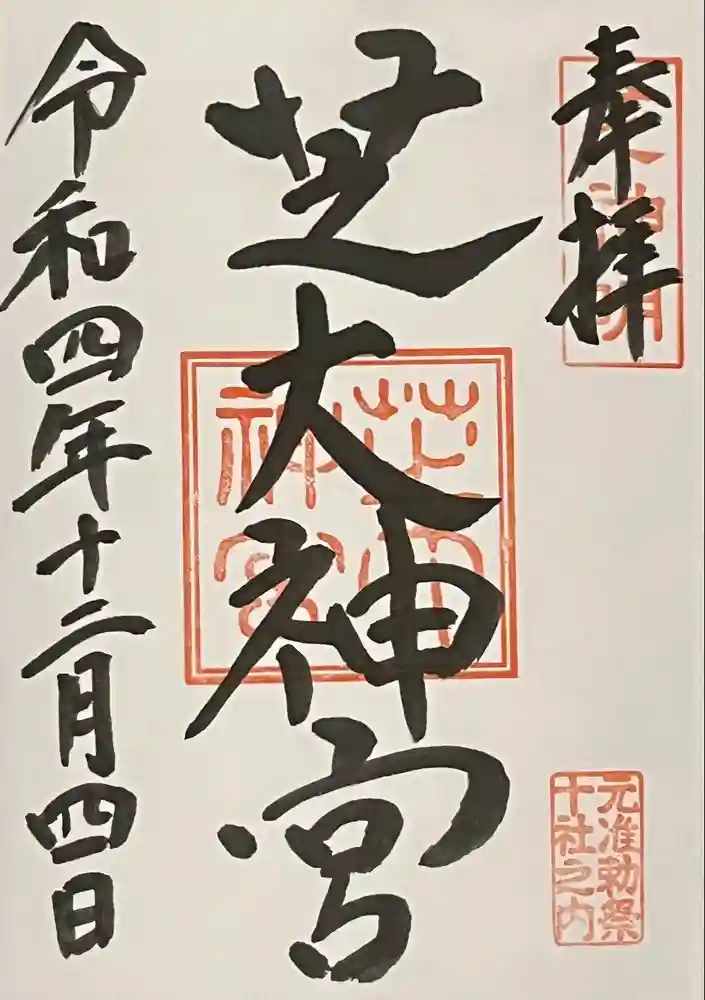 奉拝
元准勅祭
十社之内
芝大神宮
芝大
神宮
令和四年十二月四日